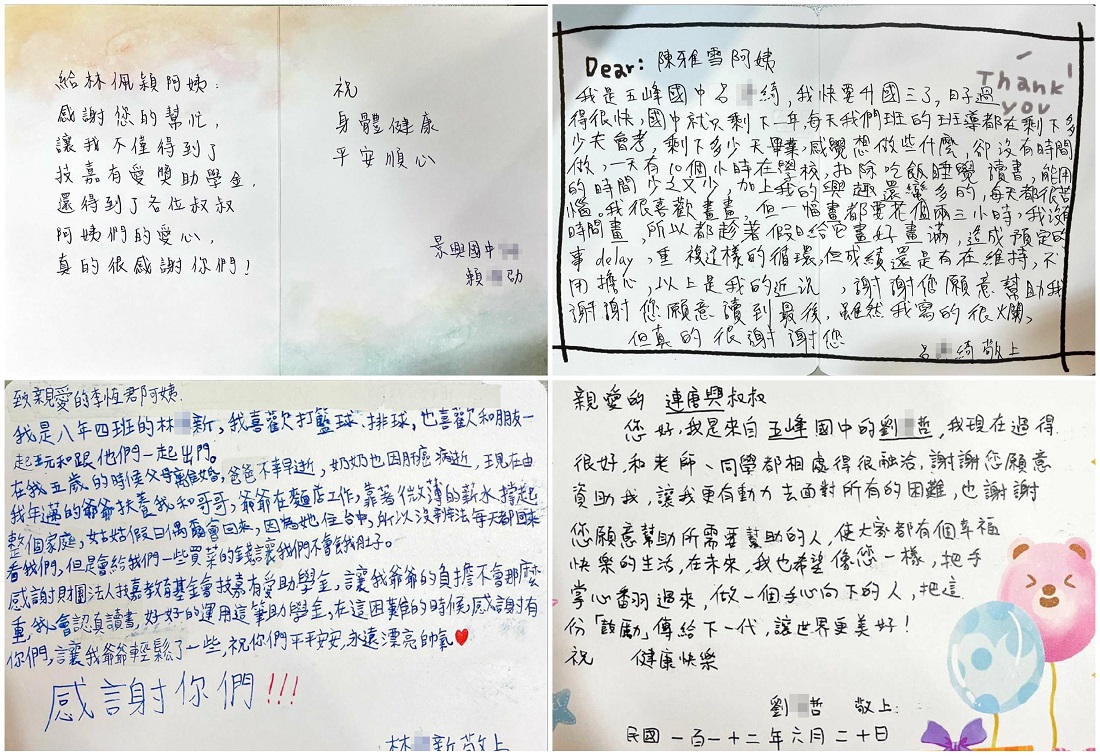 給林佩穎阿姨:
感謝您的幫忙,
讓我不僅得到了
技嘉有愛獎助學金,
還得到了各位叔叔
阿姨們的愛心,
真的很感謝你們!
祝
身體健康
平安順心
景興國中
賴 劭
Dear: 陳雅雪阿姨
Thank
you
我是五峰國中呂 綺,我快要升國三了,日子過
得很快,國中就只剩下一年,每天我們班的班導都在剩下多
少天會考,剩下多少天畢業,感覺想做些什麼,卻沒有時間
做,一天有10個小時在學校,扣除吃飯睡覺讀書,能用
的時間少之又少,加上我的興趣還蠻多的,每天都很苦
惱。我很喜歡畫畫,但一幅畫都要花個兩三小時,我沒有
時間畫,所以都趁著假日給它畫好畫滿,造成預定的
事delay,重複這樣的循環,但成績還是有在維持,不
用擔心,以上是我的近況,謝謝您願意幫助我
謝謝您願意讀到最後,雖然我寫的很爛,
但真的很謝謝您
呂 綺敬上
致親愛的李恆君阿姨
我是八年四班的林 新,我喜歡打籃球、排球,也喜歡和朋友一
起玩和跟他們一起出門。
在我五歲的時候父母離婚,爸爸不幸早逝,奶奶也因肝癌病逝,現在由
我年邁的爺爺扶養我和哥哥,爺爺在麵店工作,靠著微薄的薪水撐起
整個家庭,姑姑假日偶爾會回來,因為她住台中,所以沒辦法每天都回來
看我們,但是會給我們一些買菜的錢讓我們不會餓肚子。
感謝財團法人技嘉教育基金會技嘉有愛助學金,讓我爺爺的負擔不會那麼
重,我會認真讀書,好好的運用這筆助學金,在這困難的時候,感謝有
你們,讓我爺爺輕鬆了一些,祝你們平平安安,永遠漂亮帥氣
感謝你們!!!
林 新敬上
親愛的 連唐興叔叔
您好,我是來自五峰國中的劉 哲,我現在過得
很好,和老師、同學都相處得很融洽,謝謝您願意
資助我,讓我更有動力去面對所有的困難,也謝謝
您願意幫助所需要幫助的人,使大家都有個幸福
快樂的生活,在未來,我也希望像您一樣,把手
掌心翻過來,做一個手心向下的人,把這
份「鼓勵」傳給下一代,讓世界更美好!
祝 健康快樂
劉 哲 敬上
民國一百一十二年六月二十日